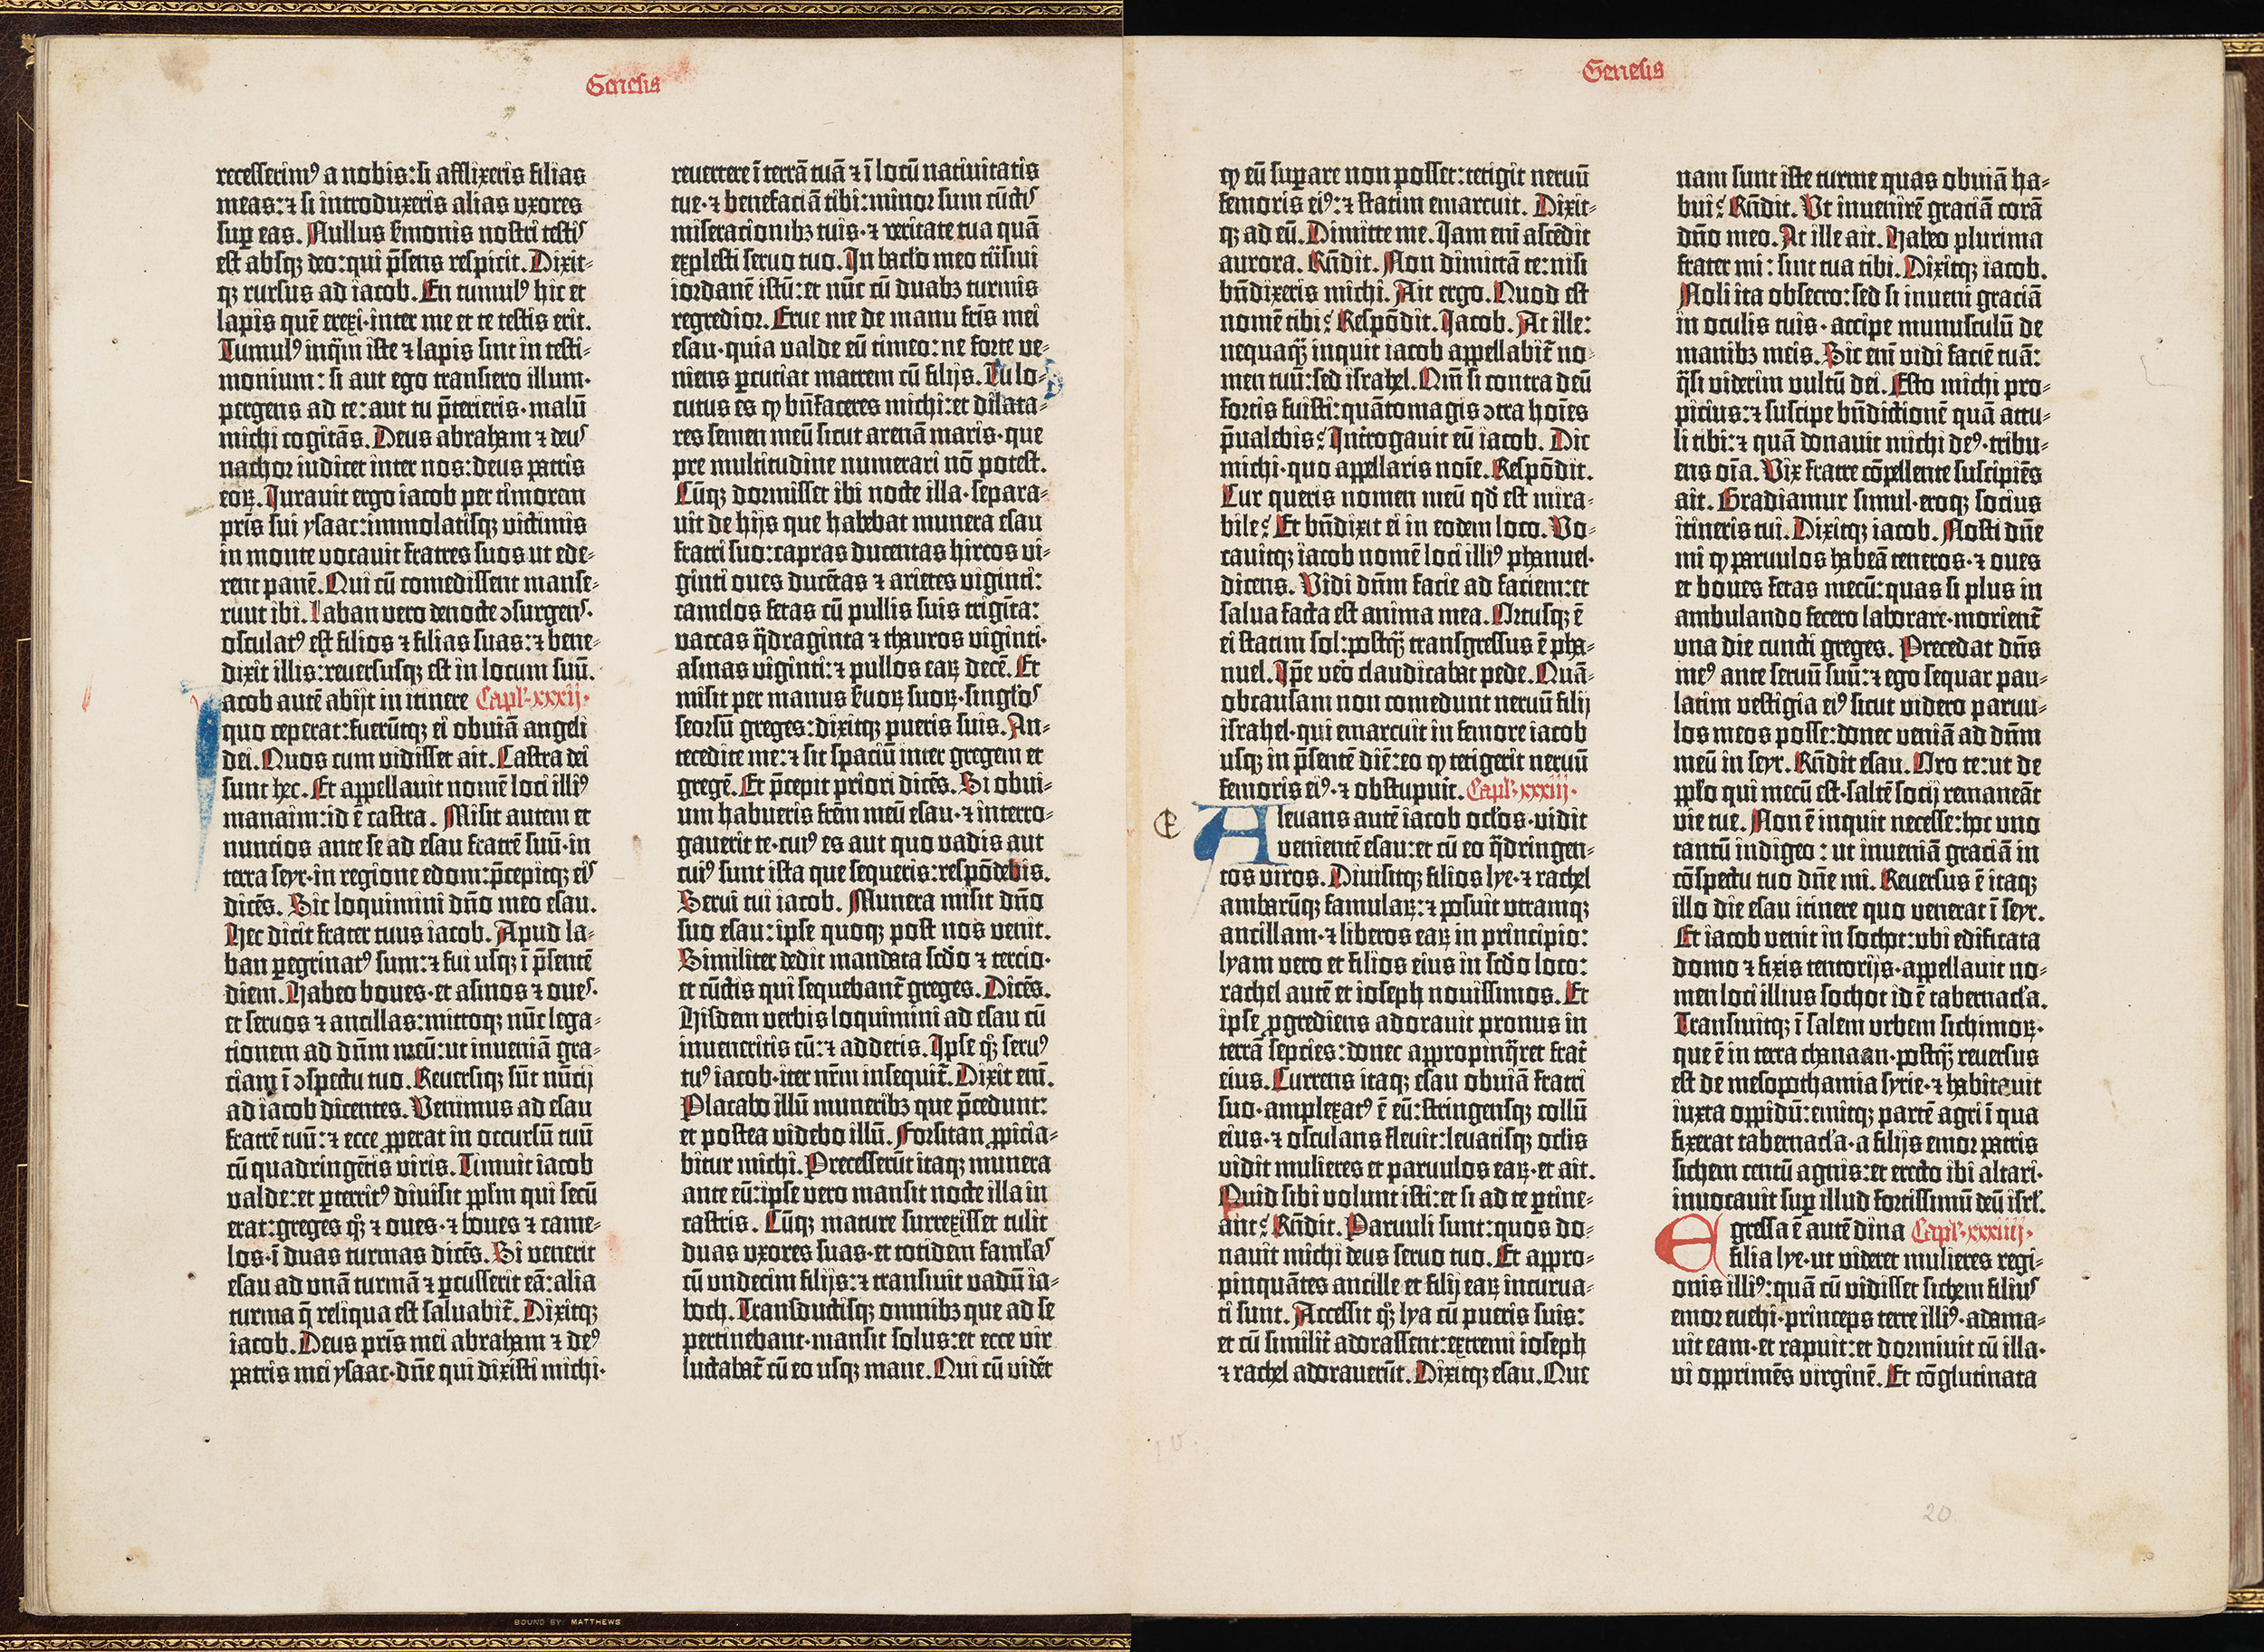 Genesis
recesserimꝰ a nobis: si afflixeris filias
meas: ⁊ si introduxeris alias uxores
suꝑ eas. Nullus ẜmonis nostri testis
est absqꝫ deo: qui p̄sens respicit. Dixit-
qꝫ rursus ad iacob. En tumulꝰ hic et
lapis quē erexi·inter me et te testis erit.
Tumulꝰ inq̄m iste ⁊ lapis sint in testi-
monium: si aut ego transiero illum·
pergens ad te: aut tu p̄terieris·malū
michi cogitās. Deus abraham ⁊ deus
nachor iudicet inter nos: deus patris
eoꝝ. Iurauit ergo iacob per timorem
pr̄is sui ysaac: immolatisqꝫ victimis
in monte vocauit fratres suos ut ede-
rent panē. Qui cū comedissent manse-
runt ibi. Laban vero denocte ꝯsurgens·
osculatꝰ est filios ⁊ filias suas: ⁊ bene-
dixit illis: reuersusqꝫ est in locum suū.
Iacob autē abijt in itinere Capl̄·xxxij·
quo ceperat: fuerūtqꝫ ei obuiā angeli
dei. Quos cum vidisset ait. Castra dei
sunt hec. Et appellauit nomē loci illiꝰ
manaim: id ē castra. Misit autem et
nuncios ante se ad esau fratrē suū·in
terra seyr·in regione edom: p̄cepitqꝫ eis
dicēs. Sic loquimini dño meo esau.
Hec dicit frater tuus iacob. Apud la-
ban ꝑegrinatꝰ sum: ⁊ fui usqꝫ ī p̄sentē
diem. Habeo boues·et asinos ⁊ oues·
et seruos ⁊ ancillas: mittoqꝫ nūc lega-
tionem ad dñm meū: ut inueniā gra-
ciam ī ꝯspectu tuo. Reuersiqꝫ sūt nūcij
ad iacob dicentes. Venimus ad esau
fratrē tuū: ⁊ ecce ꝓperat in occursū tuū
cū quadringētis viris. Timuit iacob
valde: et ꝑterritꝰ diuisit ppl̄m qui secū
erat: greges qͦꝫ ⁊ oues·⁊ boues ⁊ came-
los·ī duas turmas dicēs. Si venerit
esau ad unā turmā ⁊ ꝑcusserit eā: alia
turma q̄ reliqua est saluabit̄. Dixitqꝫ
iacob. Deus pr̄is mei abraham ⁊ deꝰ
patris mei ysaac·dñe qui dixisti michi·
reuertere ī terrā tuā ⁊ ī locū natiuitatis
tue·⁊ benefaciā tibi: minor sum cūctis
miseracionibꝫ tuis·⁊ veritate tua quā
explesti seruo tuo. In bacl̄o meo trāsiui
iordanē istū: et nūc cū duabꝫ turmis
regredior. Erue me de manu fr̄is mei
esau·quia valde eū timeo: ne forte ve-
niens ꝑcutiat matrem cū filijs. Tu lo-
cutus es ꝙ bn̄faceres michi: et dilata-
res semen meū sicut arenā maris·que
pre multitudine numerari nō potest.
Cūqꝫ dormisset ibi nocte illa·separa-
uit de hijs que habebat munera esau
fratri suo: capras ducentas hircos vi-
ginti oues ducētas ⁊ arietes viginti:
camelos fetas cū pullis suis triginta:
vaccas q̄draginta ⁊ thauros viginti·
asinas viginti: ⁊ pullos eaꝝ decē. Et
misit per manus ẜuoꝝ suoꝝ·singl̄os
seorsū greges: dixitqꝫ pueris suis. An-
tecedite me: ⁊ sit spaciū inter gregem et
gregē. Et p̄cepit priori dicēs. Si obui-
um habueris fr̄em meū esau·⁊ interro-
gauerit te·cuiꝰ es aut quo vadis aut
cuiꝰ sunt ista que sequeris: respōdebis.
Serui tui iacob. Munera misit dño
suo esau: ipse quoqꝫ post nos venit.
Similiter dedit mandata sc̄do ⁊ tercio·
et cūctis qui sequebant̄ greges. Dicēs.
Hisdem verbis loquimini ad esau cū
inueneritis eū: ⁊ addetis. Ipse qͦꝫ seruꝰ
tuꝰ iacob·iter nr̄m insequit̄. Dixit em̄.
Placabo illū muneribꝫ que p̄cedunt:
et postea videbo illū. Forsitan ꝓpicia-
bitur michi. Precesserūt itaqꝫ munera
ante eū: ipse vero mansit nocte illa in
castris. Cūqꝫ mature surrexisset tulit
duas uxores suas·et totidem faml̄as
cū undecim filijs: ⁊ transiuit vadū ia-
boch. Transductisqꝫ omnibꝫ que ad se
pertinebant·mansit solus: et ecce vir
luctabat̄ cū eo usqꝫ mane. Qui cū videt̄
Genesis
ꝙ eū suꝑare non posset: tetigit neruū
femoris eiꝰ: ⁊ statim emarcuit. Dixit-
qꝫ ad eū. Dimitte me. Iam em̄ ascēdit
aurora. Rn̄dit. Non dimittā te: nisi
bn̄dixeris michi. Ait ergo. Quod est
nomē tibi? Respōdit. Iacob. At ille:
nequaq̄ꝫ inquit iacob appellabit̄ no-
men tuū: sed israhel. Qm̄ si contra deū
fortis fuisti: quātomagis ꝯtra hoīes
p̄ualebis? Int̄rogauit eū iacob. Dic
michi·quo appellaris noīe. Respōdit.
Cur queris nomen meū qd̄ est mira-
bile? Et bn̄dixit ei in eodem loco. Vo-
cauitqꝫ iacob nomē loci illiꝰ phanuel·
dicens. Vidi dñm facie ad faciem: et
salua facta est anima mea. Ortusqꝫ ē
ei statim sol: postq̄ꝫ transgressus ē pha-
nuel. Ip̄e vēo claudicabat pede. Quā-
obcausam non comedunt neruū filij
israhel·qui emarcuit in femore iacob
usqꝫ in p̄sentē diē: eo ꝙ tetigerit neruū
femoris eiꝰ·⁊ obstupuit. Capl̄·xxxiij·
Aleuans autē iacob ocl̄os·vidit
venientē esau: et cū eo q̄dringen-
tos viros. Diuisitqꝫ filios lye·⁊ rachel
ambarūqꝫ famulaꝝ: ⁊ posuit utramqꝫ
ancillam·⁊ liberos eaꝝ in principio:
lyam vero et filios eius in sc̄do loco:
rachel autē et ioseph nouissimos. Et
ipse ꝓgrediens adorauit pronus in
terrā septies: donec appropinq̄ret frat̄
eius. Currens itaqꝫ esau obuiā fratri
suo·amplexatꝰ ē eū: stringensqꝫ collū
eius·⁊ osculans fleuit: leuatisqꝫ oclis
vidit mulieres et paruulos eaꝝ·et ait.
Quid sibi volunt isti: et si ad te ꝑtine-
ant? Rn̄dit. Paruuli sunt: quos do-
nauit michi deus seruo tuo. Et appro-
pinquātes ancille et filij eaꝝ incurua-
ti sunt. Accessit qͦꝫ lya cū pueris suis:
et cū similit̄ adorassent: extremi ioseph
⁊ rachel adorauerūt. Dixitqꝫ esau. Que
nam sunt iste turme quas obuiā ha-
bui? Rn̄dit. Vt inuenirē graciā corā
dño meo. At ille ait. Habeo plurima
frater mi: sint tua tibi. Dixitqꝫ iacob.
Noli ita obsecro: sed si inueni graciā
in oculis tuis·accipe munusculū de
manibꝫ meis. Sic em̄ vidi faciē tuā:
q̄si viderim vultū dei. Esto michi pro-
picius: ⁊ suscipe bn̄dictionē quā attu-
li tibi: ⁊ quā donauit michi deꝰ·tribu-
ens oīa. Vix fratre cōpellente suscipiēs
ait. Gradiamur simul·eroqꝫ socius
itineris tui. Dixitqꝫ iacob. Nosti dñe
mi ꝙ paruulos habeā teneros·⁊ oues
et boues fetas mecū: quas si plus in
ambulando fecero laborare·morient̄
una die cuncti greges. Precedat dñs
meꝰ ante seruū suū: ⁊ ego sequar pau-
latim vestigia eiꝰ sicut videro paruu-
los meos posse: donec veniā ad dñm
meū in seyr. Rn̄dit esau. Oro te: ut de
ppl̄o qui mecū est·saltē socij remaneāt
vie tue. Non ē inquit necesse: hoc uno
tantū indigeo: ut inueniā graciā in
cōspectu tuo dñe mi. Reuersus ē itaqꝫ
illo die esau itinere quo venerat ī seyr.
Et iacob venit in sochot: ubi edificata
domo ⁊ fixis tentorijs·appellauit no-
men loci illius sochot id ē tabernacl̄a.
Transiuitqꝫ ī salem urbem sichimoꝝ·
que ē in terra chanaan·postq̄ꝫ reuersus
est de mesopothamia syrie·⁊ habitauit
iuxta oppidū: emitqꝫ partē agri ī qua
fixerat tabernacl̄a·a filijs emor patris
sichem centū agnis: et erecto ibi altari·
inuocauit suꝑ illud fortissimū deū isrl̄.
Egressa ē autē dina Capl̄·xxxiiij·
filia lye·ut videret mulieres regi-
onis illiꝰ: quā cū vidisset sichem filius
emor euehi·princeps terre illiꝰ·adama-
uit eam·et rapuit: et dormiuit cū illa·
vi opprimēs virginē. Et cōglutinata
20
BOUND BY MATTHEWS